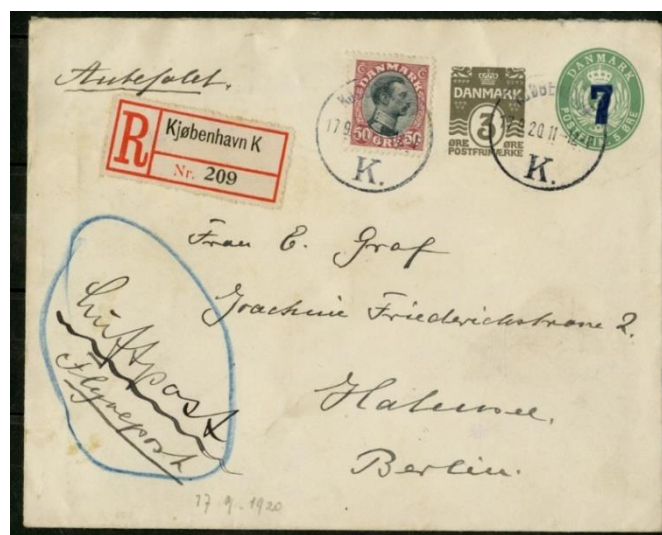 Anbefalet.
R
Kjøbenhavn K
Nr. 209
DANMARK
50 ØRE 50
DANMARK
3
ØRE ØRE
POSTFRIMÆRKE
DANMARK
7
POSTFRIM. 5 ØRE
17.9.
K.
17.9.20.11-12
K.
Frau E. Graf
Joachim Friedrichstrasse 2.
Halensee.
Berlin.
Luftpost
Flyvepost
17 9. 1920